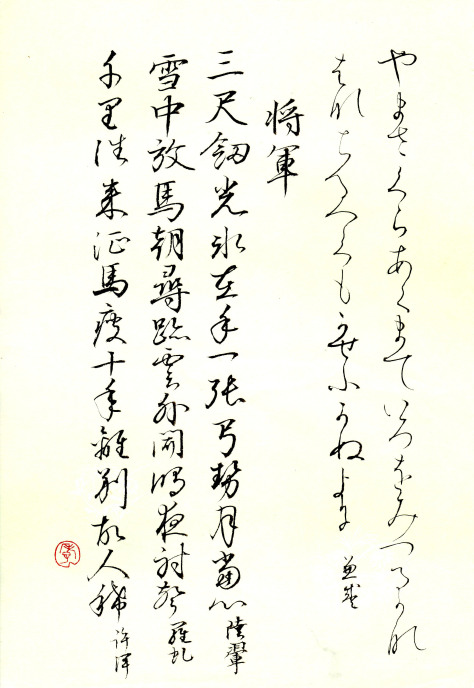 やまさくらあくまていろをみつるかな
はなちるへくもかせふかぬよに 兼盛
将軍
三尺釼光氷在手一張弓勢月當心 陸翬
雪中放馬朝尋跡雲外聞鴻夜射聲 羅虬
千里往来征馬痩十年離別故人稀 許渾